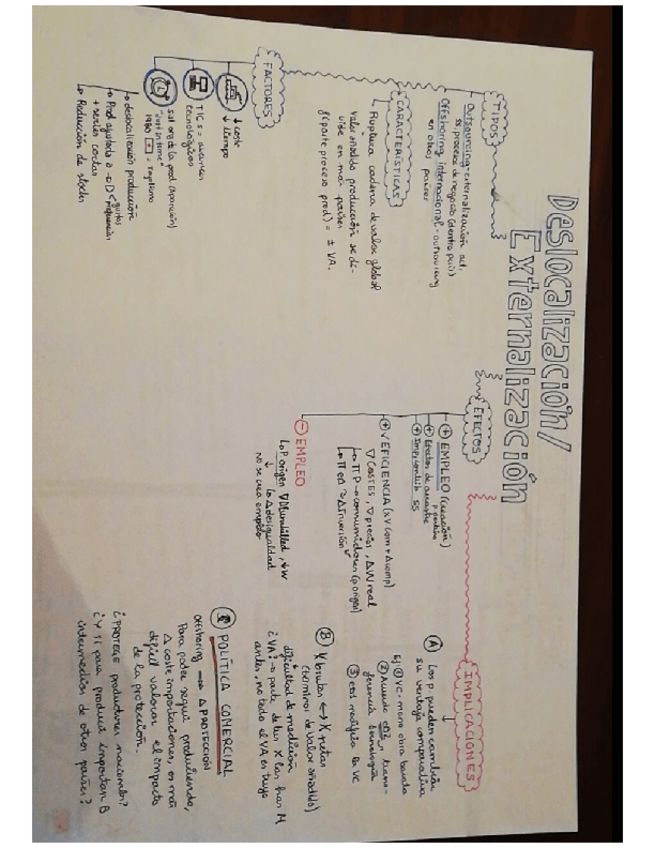 Deslocalización/
Externalización
TIPOS
Outsourcing - externalización act.
ss procesos de negocio (dentro país)
Offshoring internacional - outsourcing
en otros países
CARACTERÍSTICAS
↳ Ruptura cadena de valor global
valor añadido producción se di-
vide en más países
(≠ parte proceso prod) = ± VA.
FACTORES
↓ coste
↓ tiempo
TICs = avances
tecnológicos
sist org de la prod. (aparición)
"Just in time"
1980 = Toyotismo
↳ deslocalización producción
↳ Prod ajustada a → D < gustos
preferencias
+ series cortas
↳ Reducción de stocks
EFECTOS
⊕ EMPLEO (creación)
⊕ Efectos de arrastre
⊕ EFICIENCIA (x V Com + Δ comp)
∇ COSTES, ∇ precios, Δ W real
consumidores (p origen)
Δ Inversión
⊖ EMPLEO
↳ P. origen ∇ D unskilled, ↓ w
↳ Δ desigualdad
no se crea empleo
IMPLICACIONES
Ⓐ Los p. pueden cambiar
su ventaja comparativa
Ej: ① VC - mano obra barata
② Acuerdo con trans-
ferencia tecnología
③ esos modifica la VC
Ⓑ X brutas ↔ X netas
(términos de valor añadido)
dificultad de medición
¿VA? → parte de tus X las has M
antes, no todo el VA es tuyo
POLÍTICA COMERCIAL
Offshoring → Δ PROTECCIÓN
Para poder seguir produciendo,
Δ coste importaciones, es más
difícil valorar el impacto
de la protección.
¿PROTEGE productores nacionales?
¿Y si para producir importan B
intermedios de otros países?